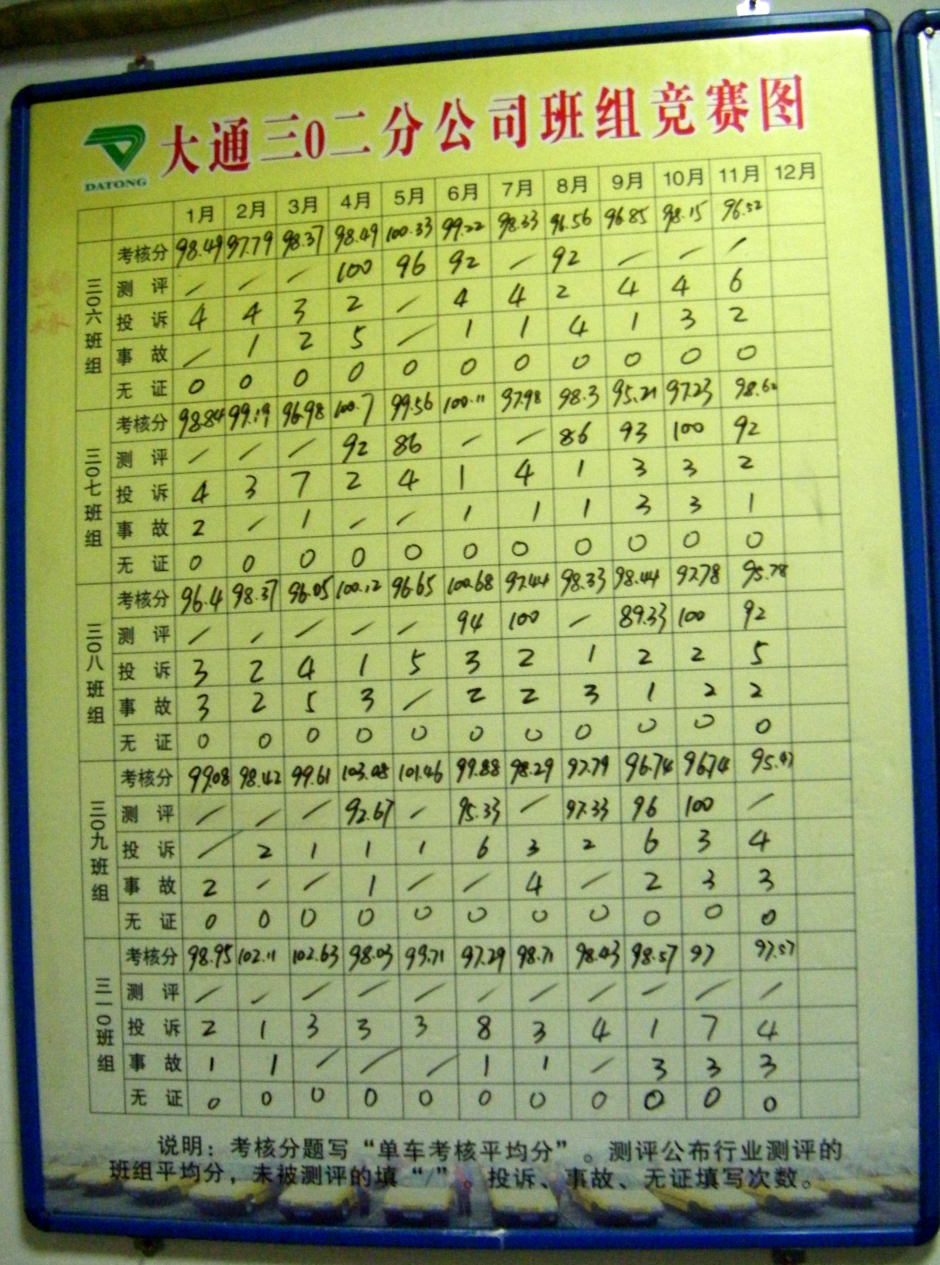 大通三0二分公司班组竞赛图
DATONG
1月 2月 3月 4月 5月 6月 7月 8月 9月 10月 11月 12月
三0六班组
考核分 98.49 97.79 98.37 98.49 100.33 99.22 98.33 96.56 96.85 98.15 96.52
测评 / / / 100 96 92 / 92 / / /
投诉 4 4 3 2 / 4 4 2 4 4 6
事故 / 1 2 5 / 1 1 4 1 3 2
无证 0 0 0 0 0 0 0 0 0 0 0
三0七班组
考核分 98.84 99.19 96.98 100.7 99.56 100.11 97.98 98.3 95.21 97.23 98.62
测评 / / / 92 86 / / 86 93 100 92
投诉 4 3 7 2 4 1 4 1 3 3 2
事故 2 / 1 / / 1 1 1 3 3 1
无证 0 0 0 0 0 0 0 0 0 0 0
三0八班组
考核分 96.4 98.37 96.05 100.12 96.65 100.68 97.44 98.33 98.44 97.78 95.78
测评 / / / / / 94 100 / 89.33 100 92
投诉 3 2 4 1 5 3 2 1 2 2 5
事故 3 2 5 3 / 2 2 3 1 2 2
无证 0 0 0 0 0 0 0 0 0 0 0
三0九班组
考核分 99.08 98.42 99.61 103.08 101.46 99.88 98.29 97.79 96.74 96.74
测评 / / / 92.67 / 95.33 / 97.33 96 100 /
投诉 / 2 1 1 1 6 3 2 6 3 4
事故 2 / / 1 / / 4 / 2 3 3
无证 0 0 0 0 0 0 0 0 0 0 0
三一0班组
考核分 98.95 102.11 102.63 98.03 99.71 97.29 98.71 98.43 98.57 97 97.57
测评 / / / / / / / / / / /
投诉 2 1 3 3 3 8 3 4 1 7 4
事故 1 1 / / / 1 1 / 3 3 3
无证 0 0 0 0 0 0 0 0 0 0 0
说明：考核分题写“单车考核平均分”。测评公布行业测评的
班组平均分，未被测评的填“/”。投诉、事故、无证填写次数。